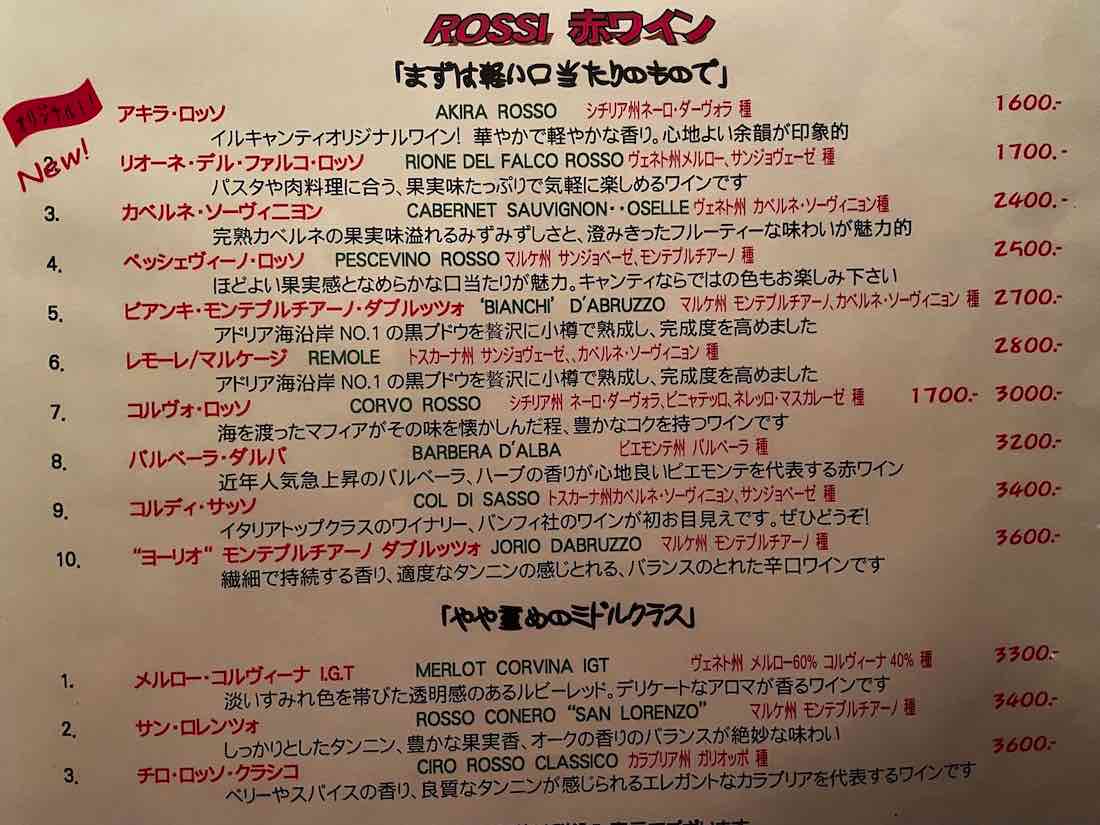 ROSSI 赤ワイン
「まずは軽い口当たりのもので」
オリジナル!! アキラ・ロッソ AKIRA ROSSO シチリア州ネーロ・ダーヴォラ 種 1600.-
イルキャンティオリジナルワイン! 華やかで軽やかな香り。心地よい余韻が印象的
New! 2. リオーネ・デル・ファルコ・ロッソ RIONE DEL FALCO ROSSO ヴェネト州メルロー、サンジョヴェーゼ 種 1700.-
パスタや肉料理に合う、果実味たっぷりで気軽に楽しめるワインです
3. カベルネ・ソーヴィニヨン CABERNET SAUVIGNON・・OSELLE ヴェネト州 カベルネ・ソーヴィニョン種 2400.-
完熟カベルネの果実味溢れるみずみずしさと、澄みきったフルーティーな味わいが魅力的
4. ペッシェヴィーノ・ロッソ PESCEVINO ROSSO マルケ州 サンジョベーゼ、モンテプルチアーノ 種 2500.-
ほどよい果実感となめらかな口当たりが魅力。キャンティならではの色もお楽しみ下さい
5. ビアンキ・モンテプルチアーノ・ダブルッツォ 'BIANCHI' D'ABRUZZO マルケ州 モンテプルチアーノ、カベルネ・ソーヴィニョン 種 2700.-
アドリア海沿岸 NO.1の黒ブドウを贅沢に小樽で熟成し、完成度を高めました
6. レモーレ/マルケージ REMOLE トスカーナ州 サンジョヴェーゼ、、カベルネ・ソーヴィニョン 種 2800.-
アドリア海沿岸 NO.1の黒ブドウを贅沢に小樽で熟成し、完成度を高めました
7. コルヴォ・ロッソ CORVO ROSSO シチリア州 ネーロ・ダーヴォラ、ピニャテッロ、ネレッロ・マスカレーゼ 種 1700.- 3000.-
海を渡ったマフィアがその味を懐かしんだ程、豊かなコクを持つワインです
8. バルベーラ・ダルバ BARBERA D'ALBA ピエモンテ州 バルベーラ 種 3200.-
近年人気急上昇のバルベーラ、ハーブの香りが心地良いピエモンテを代表する赤ワイン
9. コルディ・サッソ COL DI SASSO トスカーナ州カベルネ・ソーヴィニョン、サンジョベーゼ 種 3400.-
イタリアトップクラスのワイナリー、バンフィ社のワインが初お目見えです。ぜひどうぞ!
10. "ヨーリオ" モンテプルチアーノ ダブルッツォ JORIO DABRUZZO マルケ州 モンテプルチアーノ 種 3600.-
繊細で持続する香り、適度なタンニンの感じとれる、バランスのとれた辛口ワインです
「やや重めのミドルクラス」
1. メルロー・コルヴィーナ I.G.T MERLOT CORVINA IGT ヴェネト州 メルロー60% コルヴィーナ40% 種 3300.-
淡いすみれ色を帯びた透明感のあるルビーレッド。デリケートなアロマが香るワインです
2. サン・ロレンツォ ROSSO CONERO "SAN LORENZO" マルケ州 モンテプルチアーノ 種 3400.-
しっかりとしたタンニン、豊かな果実香、オークの香りのバランスが絶妙な味わい
3. チロ・ロッソ・クラシコ CIRO ROSSO CLASSICO カラブリア州 ガリオッポ 種 3600.-
ベリーやスパイスの香り、良質なタンニンが感じられるエレガントなカラブリアを代表するワインです